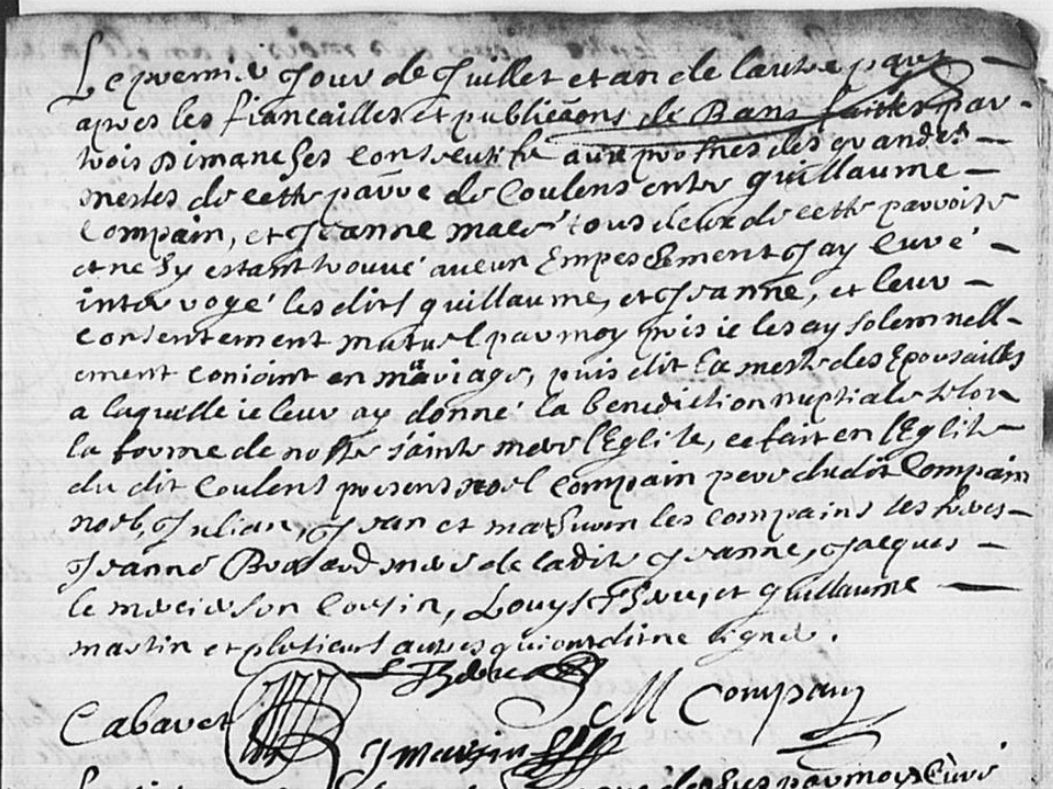 Le premier Jour de Juillet et an de lautre part
apres les fiancailles et publicãons de Bans faittes par
trois Dimanches consecutifs aux prosnes des grandes
messes de cette parr̃e de Coulens entre guillaume
Compain, et Jeanne male tous deux de cette parroisse
et ne sy estant trouvé aucun Empeschement Jay Curé
interrogé lesdits guillaume, et Jeanne, et leur
consentement mutuel par moy pris ie les ay solemnell-
ement conioint en mariage, puis dit La messe des Epousailles
a laquelle ie leur ay donné la benediction nuptiale selon
la forme de nostre sainte mere lEglise, ce fait en lEglise
du dit Coulens presens noel Compain pere dudit Compain
noel, Julian, Jean et mathurin les compains ses freres
Jeanne mere de ladite Jeanne, Jacques
le mercier son Cousin, Louys et guillaume
martin et plusieurs autres qui ont dit ne signer.
M Compain
Cabaret
J martin
par moy Curé